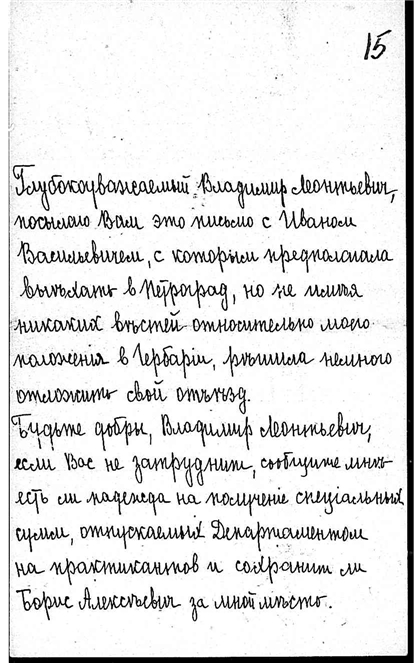 15
Глубокоуважаемый Владимир Леонтьевич,
посылаю Вам это письмо с Иваном
Васильевичем, с которым предполагала
выѣхать в Петроград, но не имѣя
никаких вѣстей относительно моего
положенія в Гербаріи, рѣшила немного
отложить свой отъѣзд.
Будьте добры, Владимир Леонтьевич,
если Вас не затруднит, сообщите мнѣ
есть ли надежда на полученіе спеціальных
сумм, отпускаемых Департаментом
на практикантов и сохранит ли
Борис Алексѣевич за мной мѣсто.